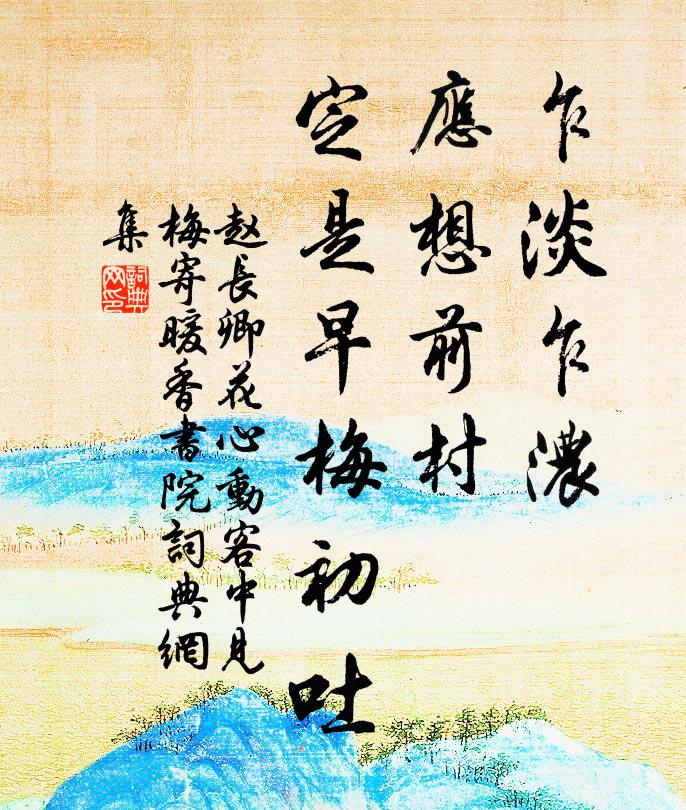 乍淡乍濃
應想前村
定是早梅初吐
赵長卿花心動客中見
梅寄暖香書院詞典網
集
詞典網印